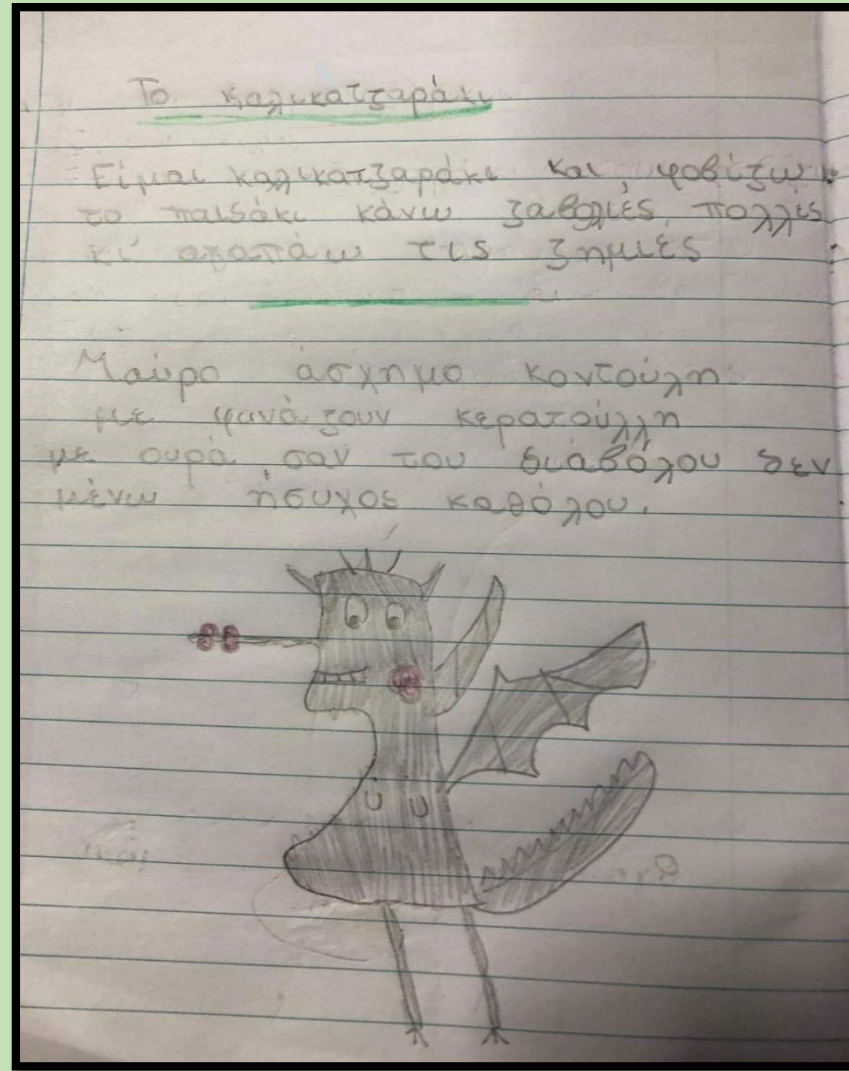 Το καλικατζαράκι
Είμαι καλικατζαράκι και φοβίζω
το παιδάκι κάνω ζαβολιές πολλές
κι' αγαπάω τις ζημιές
Μαύρο άσχημο κοντούλη
με φωνάζουν κερατούλλη
με ουρά σαν του διαβόλου δεν
μένω ήσυχος καθόλου.